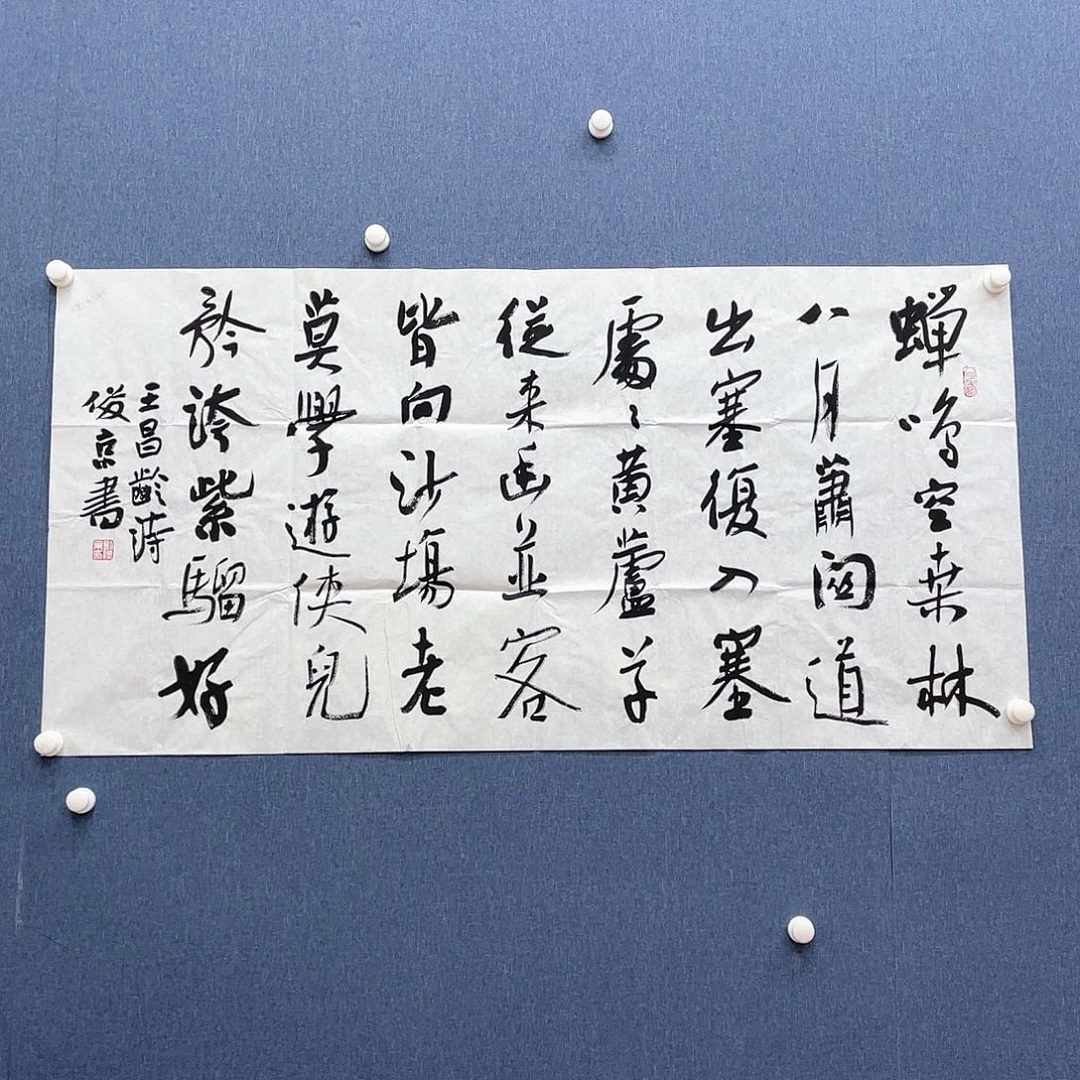 蟬鳴空桑林
八月蕭関道
出塞復入塞
處〻黃蘆草
従来幽並客
皆向沙場老
莫學遊侠兒
矜誇紫騮好
王昌齡詩
俊京書